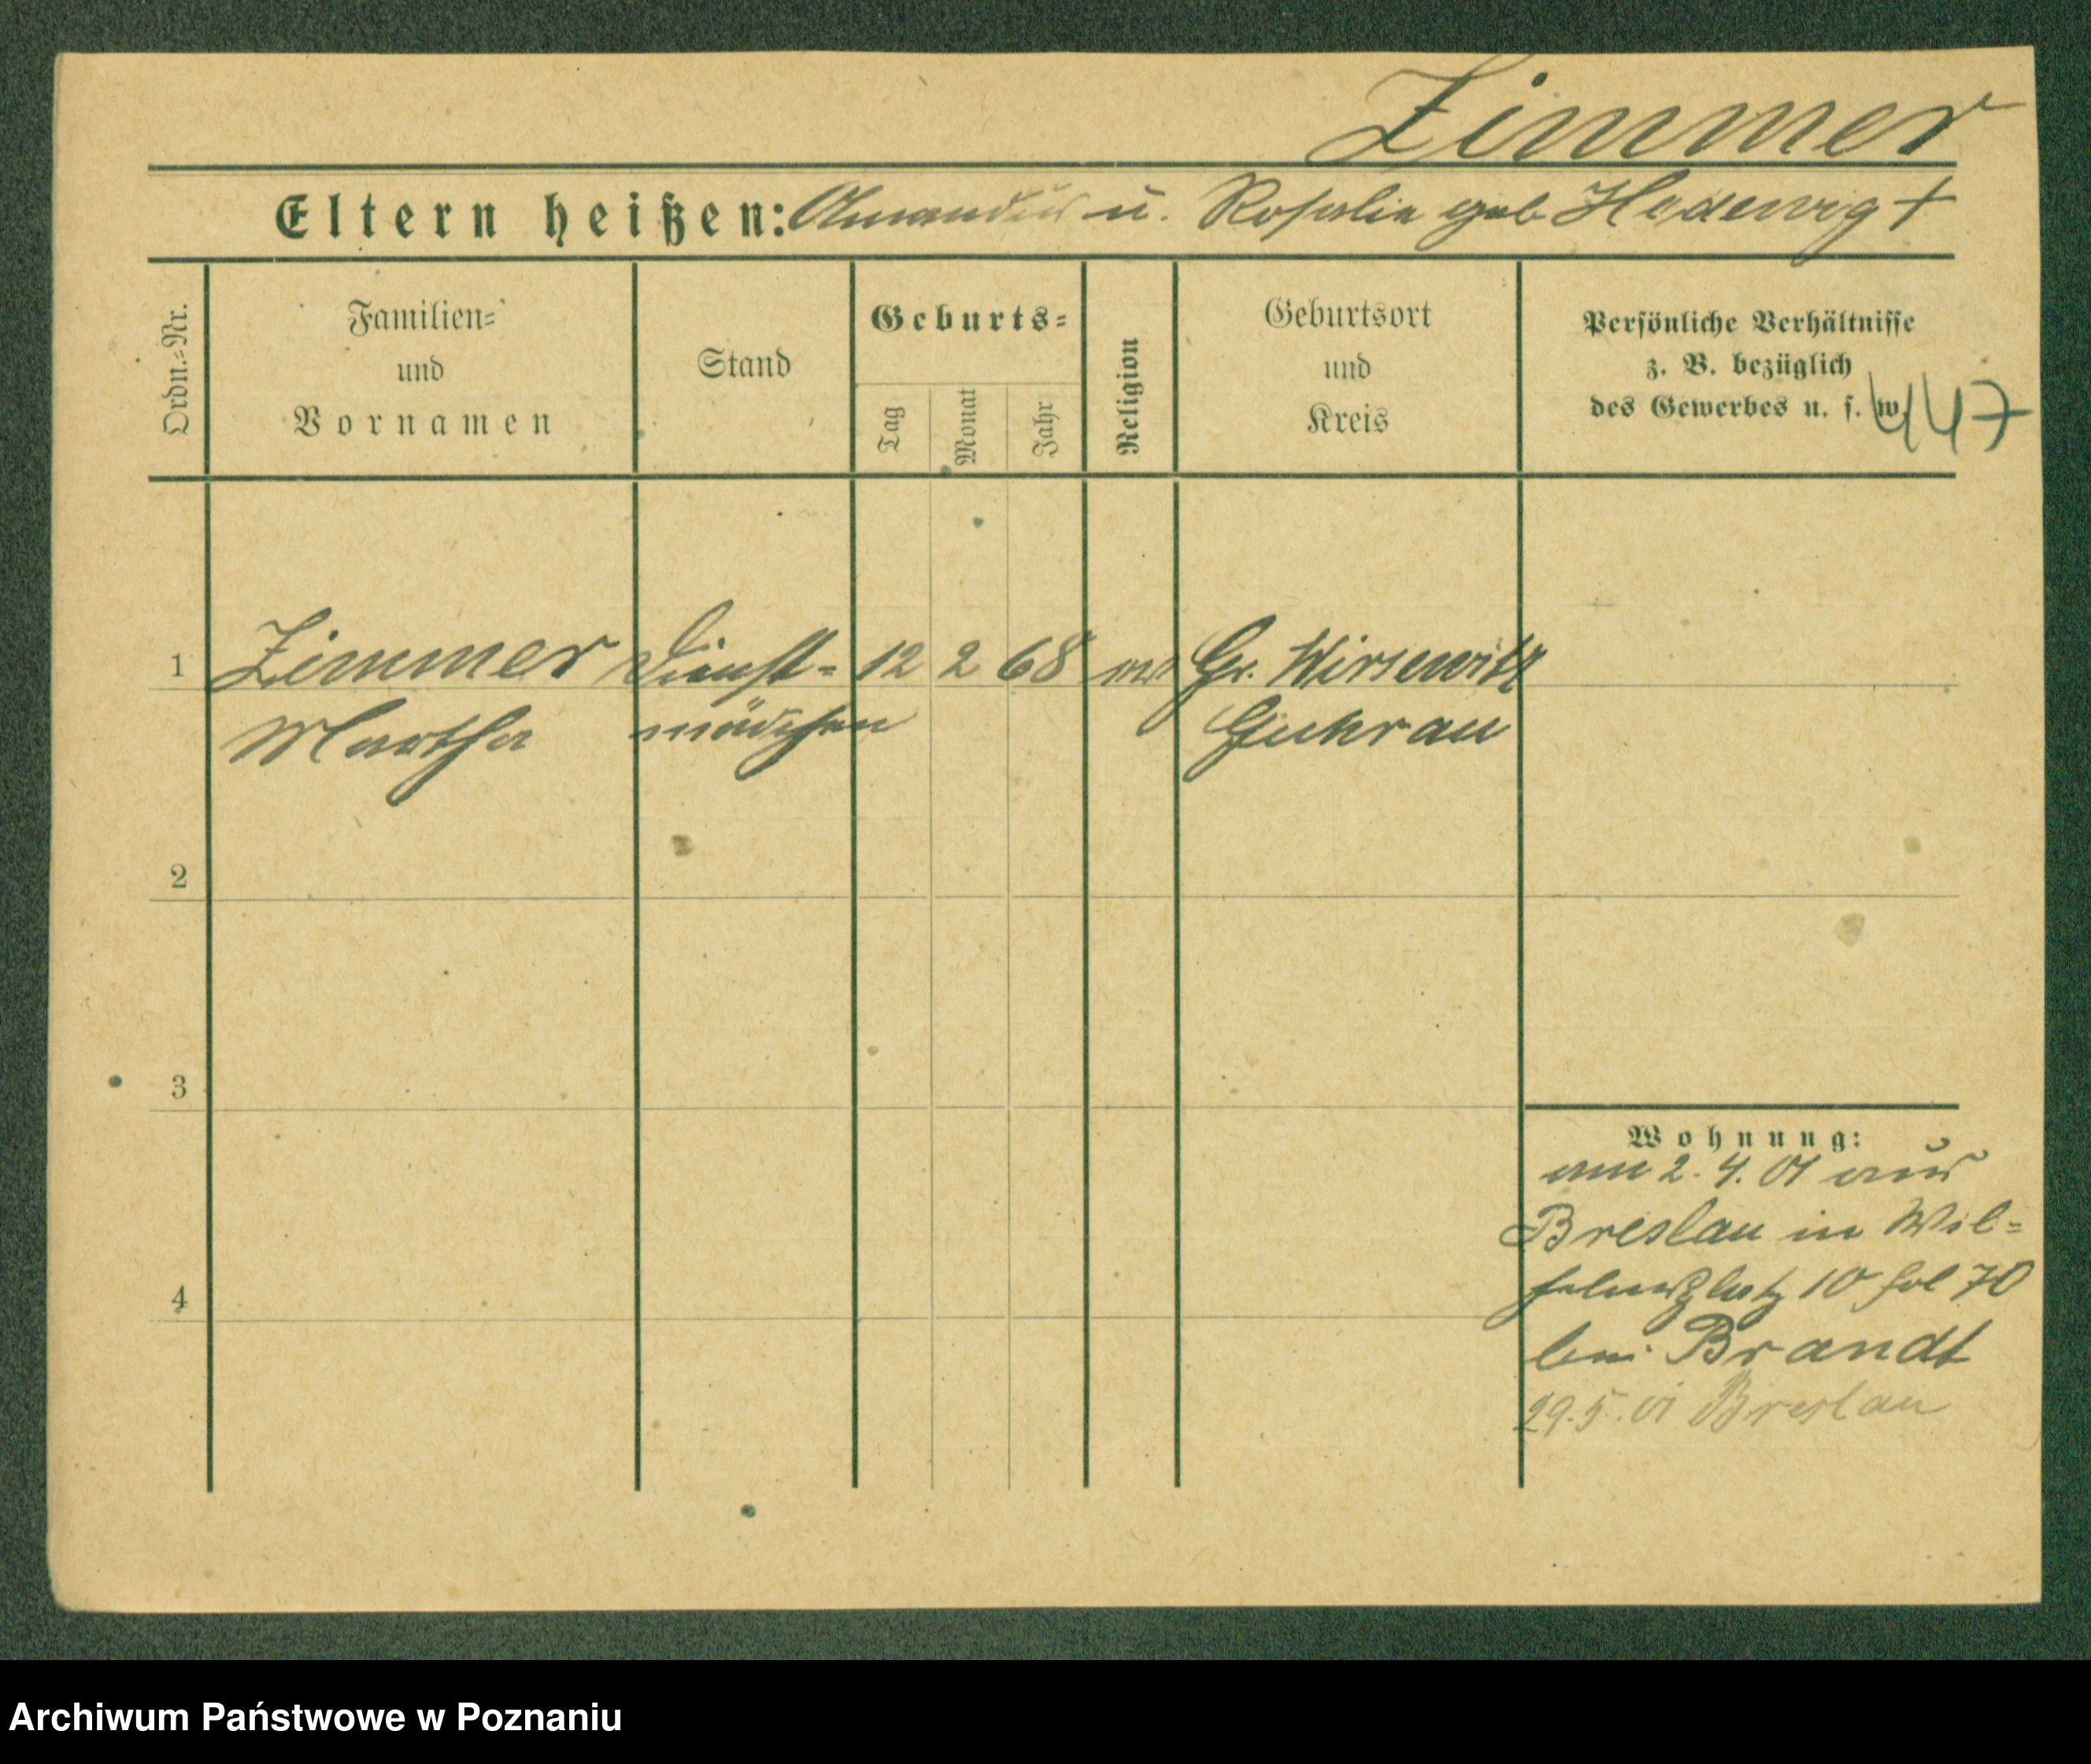 Zimmer
Eltern heißen: Amandus u. Rosalie geb Hedewig †
Ordn.=Nr.
Familien=
und
Vornamen
Stand
Geburts=
Tag
Monat
Jahr
Religion
Geburtsort
und
Kreis
Persönliche Verhältnisse
z. B. bezüglich
des Gewerbes u. s. w.
447
1 Zimmer Dienst= 12 2 68 Gr. Wirsewitz
Martha mädchen Guhrau
2
3
4
Wohnung:
am 2. 4. 01 aus
Breslau in Wil=
helmsplatz 10 fol 70
bei Brandt
29. 5. 01 Breslau
Archiwum Państwowe w Poznaniu